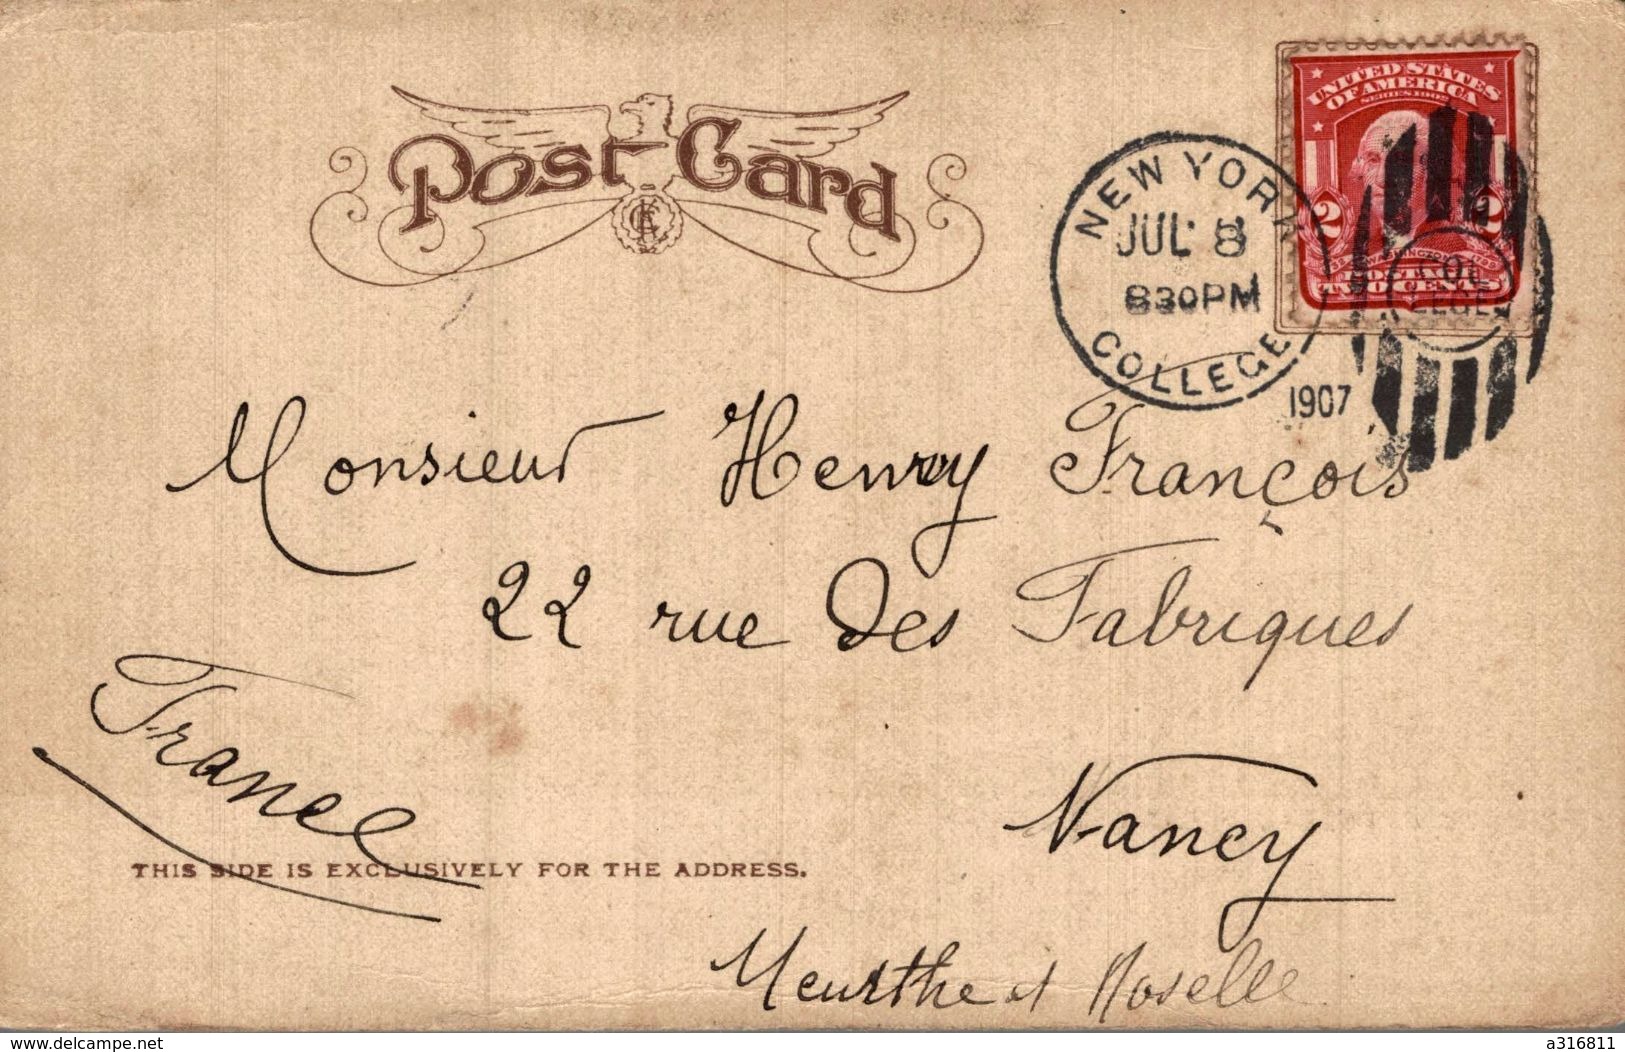 Post Card
UNITED STATES
OF AMERICA
SERIES 1902
2 2
POSTAGE
TWO CENTS
NEW YORK
JUL 8
830PM
COLLEGE
1907
COL
LEGE
Monsieur Henry François
22 rue des Fabriques
Nancy
Meurthe et Moselle
France
THIS SIDE IS EXCLUSIVELY FOR THE ADDRESS.
delcampe.net
a316811